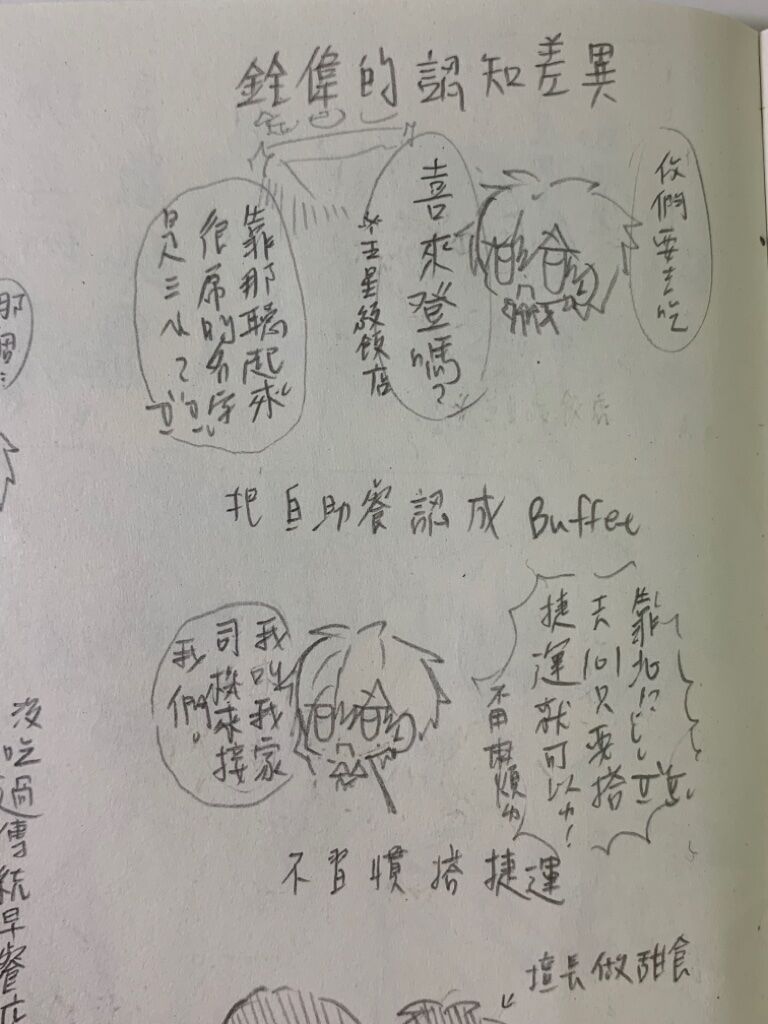 銓偉的認知差異
你們要去吃
喜來登嗎？
*五星級飯店
靠那聽起來
很屌的名字
是三小？
把自助餐認成Buffet
靠北!?
去101只要搭
捷運就可以ㄌ！
不用麻煩ㄌ
我叫我家
司機來接
我們。
不習慣搭捷運
擅長做甜食
沒吃過傳統早餐店
那個